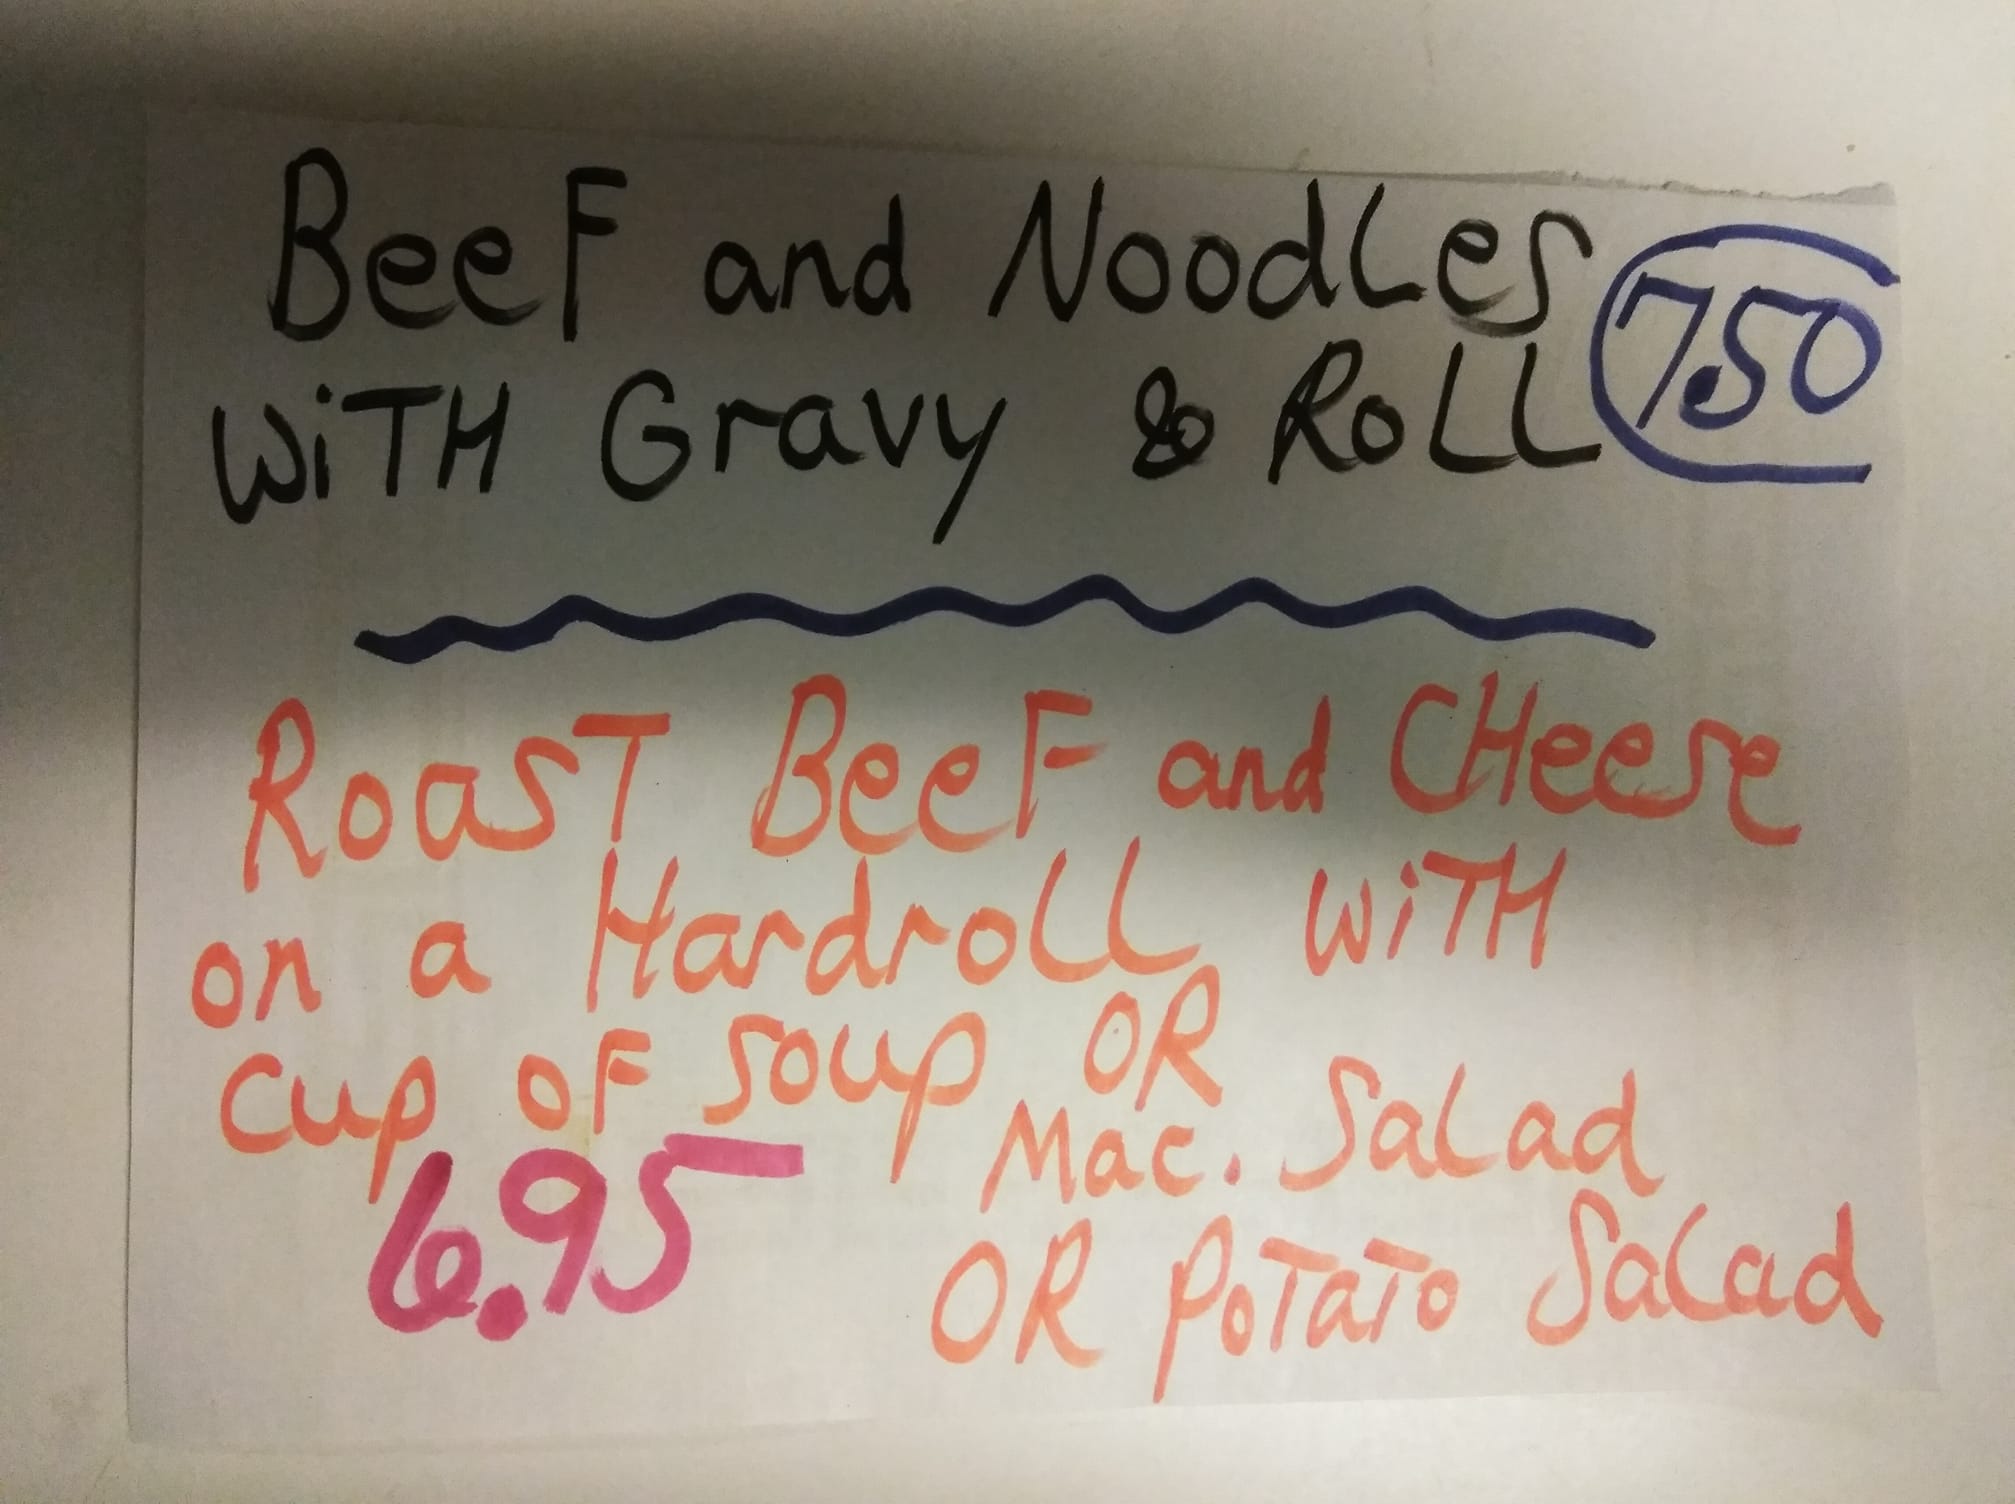 BeeF and NoodLes
WiTH Gravy & RoLL
7.50
RoasT BeeF and CHeese
on a HardroLL WiTH
Cup oF Soup OR
Mac. SaLad
OR PoTaTo SaLad
6.95